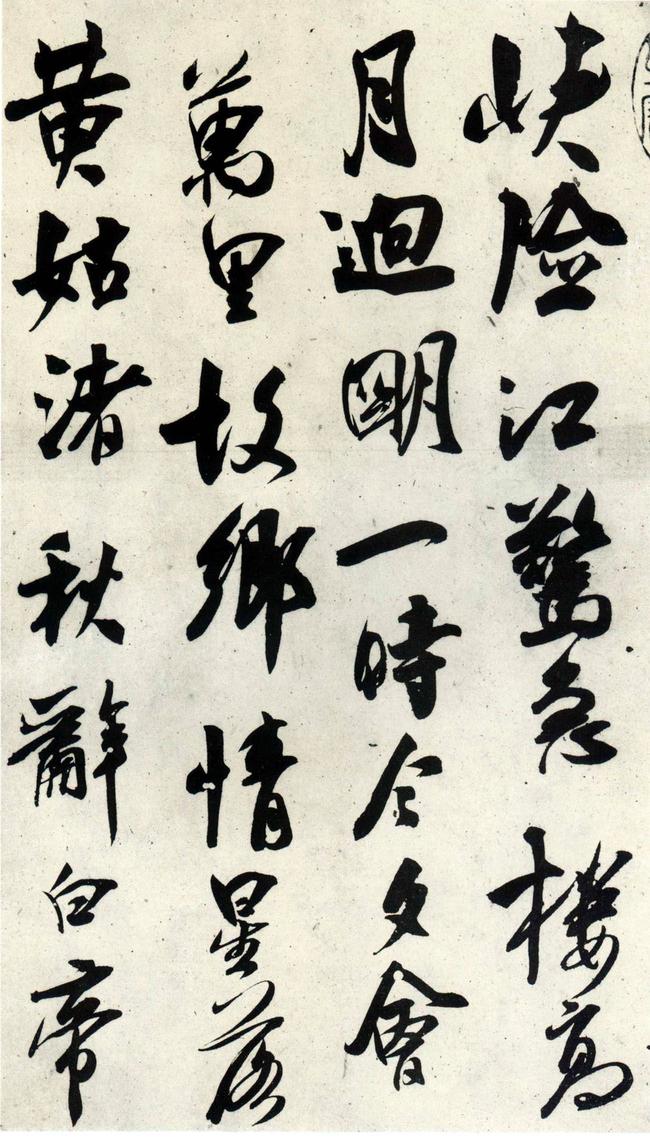 峽險江驚急樓高
月逈明一時今夕會
萬里故鄉情星落
黃姑渚秋辭白帝